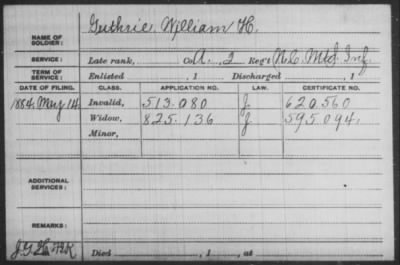 NAME OF SOLDIER: Guthrie, William H.
SERVICE: Late rank, Co. A. 2 Reg't N.C. Mtd. Inf.
TERM OF SERVICE: Enlisted , 1 Discharged , 1
DATE OF FILING. CLASS. APPLICATION NO. LAW. CERTIFICATE NO.
1884. May 14 Invalid, 513.080 J. 620.560
Widow, 825.136 J. 595094.
Minor,
ADDITIONAL SERVICES:
REMARKS:
Died , 1 , at